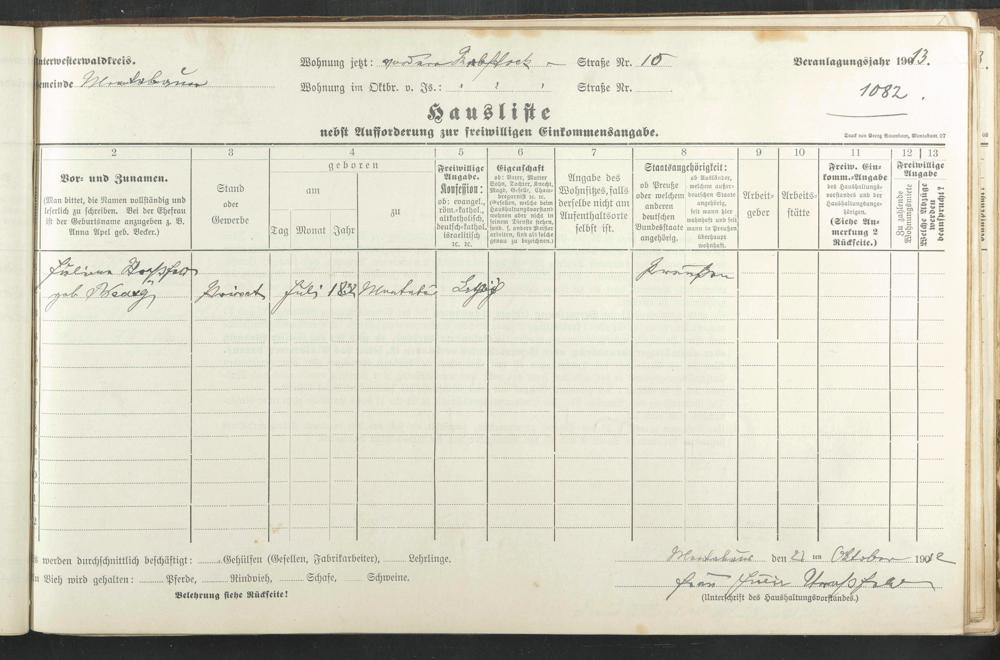 nterwesterwaldkreis.
Wohnung jetzt: vordere Rebstock — Straße Nr. 15
Veranlagungsjahr 1913.
emeinde Montabaur
Wohnung im Oktbr. v. Js.: " " " Straße Nr.
1082.
Hausliste
nebst Aufforderung zur freiwilligen Einkommensangabe.
Druck von Georg Sauerborn, Montabaur. 07
2 3 4 5 6 7 8 9 10 11 12 13
Vor- und Zunamen.
(Man bittet, die Namen vollständig und
leserlich zu schreiben. Bei der Ehefrau
ist der Geburtsname anzugeben z. B.
Anna Apel geb. Becker.)
Stand
oder
Gewerbe
geboren
am
zu
Tag Monat Jahr
Freiwillige
Angabe.
Konfession:
ob: evangel.,
röm.-kathol.,
altkatholisch,
deutsch-kathol.
israelitisch
2c. 2c.
Eigenschaft
ob: Vater, Mutter
Sohn, Tochter, Knecht,
Magd, Geselle, Cham-
bregarnist 2c. 2c.
(Gesellen, welche beim
Haushaltungsvorstand
wohnen aber nicht in
seinem Dienste stehen,
sond. f. andere Meister
arbeiten, sind als solche
genau zu bezeichnen.)
Angabe des
Wohnsitzes, falls
derselbe nicht am
Aufenthaltsorte
selbst ist.
Staatsangehörigkeit:
ob Preuße
oder welchem
anderen
deutschen
Bundesstaate
angehörig.
ob Ausländer,
welchem außer-
deutschen Staate
angehörig,
seit wann hier
wohnhaft und seit
wann in Preußen
überhaupt
wohnhaft.
Arbeit-
geber
Arbeits-
stätte
Freiw. Ein-
komm.-Angabe
des Haushaltungs-
vorstandes und der
Haushaltungsange-
hörigen.
(Siehe An-
merkung 2
Rückseite.)
Freiwillige
Angabe
Zu zahlende
Wohnungsmiete
Welche Abzüge
werden
beansprucht?
Juliane
Preußen
geb Privat Juli Montabaur
werden durchschnittlich beschäftigt: Gehülfen (Gesellen, Fabrikarbeiter), Lehrlinge.
Montabaur den 21 ten Oktober 1912
n Vieh wird gehalten: Pferde, Rindvieh, Schafe, Schweine.
Frau
Belehrung siehe Rückseite!
(Unterschrift des Haushaltungsvorstandes.)